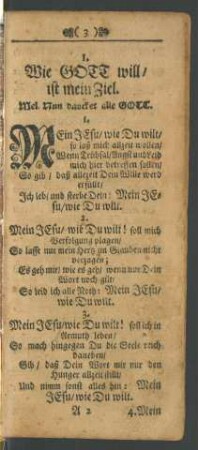 ( 3 )
1.
Wie GOTT will/
ist mein Ziel.
Mel. Nun dancket alle GOTT.
1.
MEin JEsu/ wie Du wilt/
so laß mich allzeit wollen/
Wenn Trübsal/ Angst und Leid
mich hier betreffen sollen/
So gib/ daß allezeit Dein Wille werd
erfüllt/
Ich leb/ und sterbe Dir: Mein JE-
su/ wie Du wilt.
2.
Mein JEsu/ wie Du wilt! soll mich
Verfolgung plagen/
So lasse nur mein Hertz im Glauben nicht
verzagen;
Es geh mir/ wie es geh/ wenn nur Dein
Wort noch gilt/
So leid ich alle Noth: Mein JEsu/
wie Du wilt.
3.
Mein JEsu/ wie Du wilt! soll ich in
Armuth leben/
So mach hingegen Du die Seele reich
daneben/
Gib/ daß Dein Wort mir nur den
Hunger allzeit stillt/
Und nimm sonst alles hin: Mein
JEsu/ wie Du wilt.
A 2 4. Mein